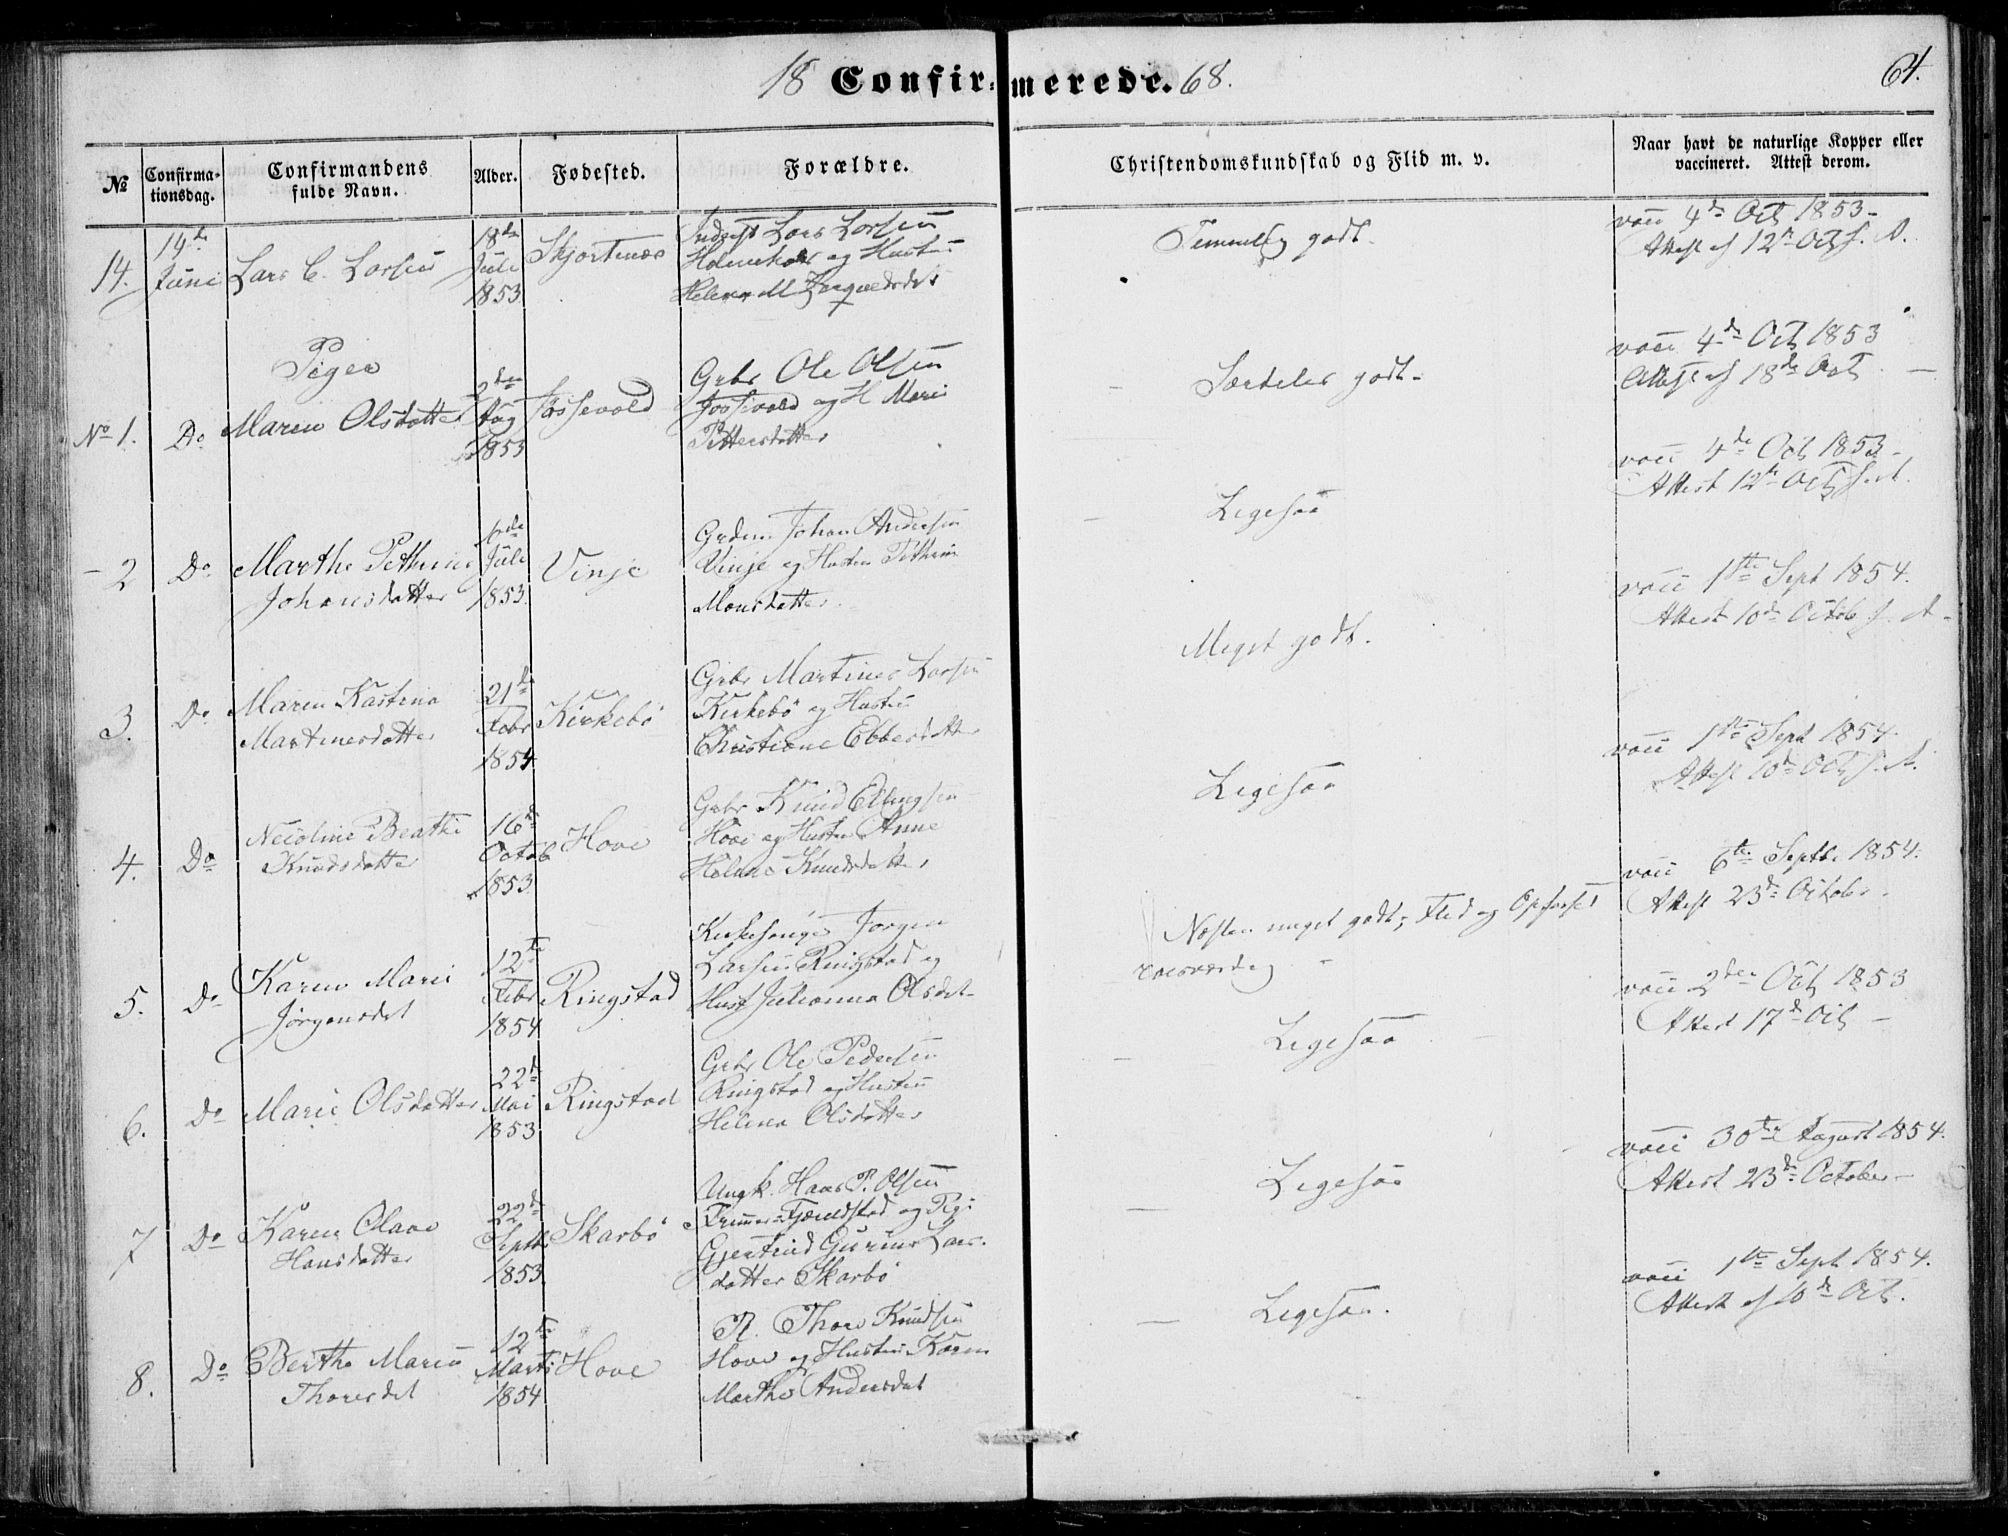 18 Confirmerede. 68.
64.
No
Confirma-
tionsdag.
Confirmandens
fulde Navn.
Alder.
Fødested.
Forældre.
Christendomskundskab og Flid m. v.
Naar havt de naturlige Kopper eller
vaccineret. Attest derom.
14.
14de
Juni
Lars C. Larsen
18de
Juli
1853
Skjortnes
Lars Larsen
og Hustru
Temmelig godt.
vacc 4de Oct 1853 -
Attest af 12te Oct s. A.
Piger
No 1.
Do
Maren Olsdatter
2den
Aug
1853
Fossevold
Grbr Ole Olsen
Fossevold og H Mari
Pettersdatter
Særdeles godt -
vacc 4de Oct 1853
Attest af 18de Oct -
- 2
Do
Marthe Pethrine
Johansdatter
6de
Juli
1853.
Vinje
Grdm. Johan Andersen
Vinje og Hustru Pethrine
Monsdatter.
- Ligesaa
vacc 4de Oct 1853 -
Attest 12te Oct s. A.
3.
Do
Maren Kastina
Martinesdatter
21de
Febr
1854
Kirkebö
Grbr Martines Larsen
Kirkebö og Hustru
Christiane Ebbesdatter
Meget godt.
vacc 1ste Sept 1854.
Attest 10de Octob s. A -
4.
Do
Nicoline Beathe
Knudsdatter
16de
Octob
1853
Hove
Grbr Knud Ellingsen
Hove og Hustru Anne
Helene Knudsdatter
Ligesaa
vacc 1ste Sept 1854.
Attest 10de Oct s. A.
5.
Do
Karen Marie
Jörgensdat
12te
Febr
1854
Ringstad
Kirkesanger Jørgen
Larsen Ringstad og
Hust Julianna Olsdat -
Næsten meget godt; Flid og Opførsel
roesværdig -
vacc 6te Septbr 1854.
Attest 23de October.
6.
Do
Marie Olsdatter
22de
Mai
1853
Ringstad
Grbr Ole Pedersen
Ringstad og Hustru
Helena Olsdatter
- Ligesaa
vacc 2den Oct 1853
Attest 17de Oct -
7
Do
Karen Olave
Hansdatter
22de
Septbr
1853
Skarbö
Ungk. Hans P. Olsen
og Pige
Gjertrud Gurine Lars-
datter Skarbö
Ligesaa
vacc 30te August 1854.
Attest 23de October -
8.
Do
Berthe Maren
Thoresdat
12te
Marts
1854
Hove
Thore Knudsen
Hove og Hustru Karen
Marthe Andersdat
- Ligesaa.
vacc 1ste Sept 1854.
Attest af 10de Oct.